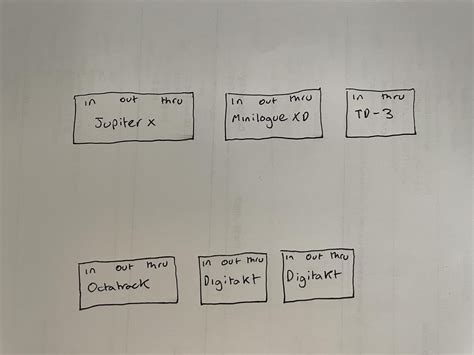 in out thru
Jupiter X
in out thru
Minilogue XD
in thru
TD-3
in out thru
Octatrack
in out thru
Digitakt
in out thru
Digitakt